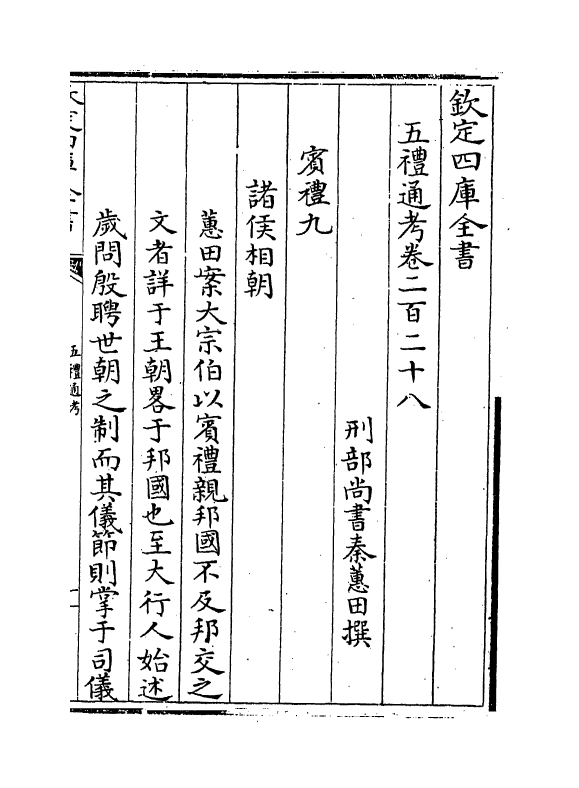 欽定四庫全書
五禮通考卷二百二十八
刑部尚書秦蕙田撰
賓禮九
諸侯相朝
蕙田案大宗伯以賓禮親邦國不及邦交之
文者詳于王朝畧于邦國也至大行人始述
歲問殷聘世朝之制而其儀節則掌于司儀
欽定四庫全書
五禮通考